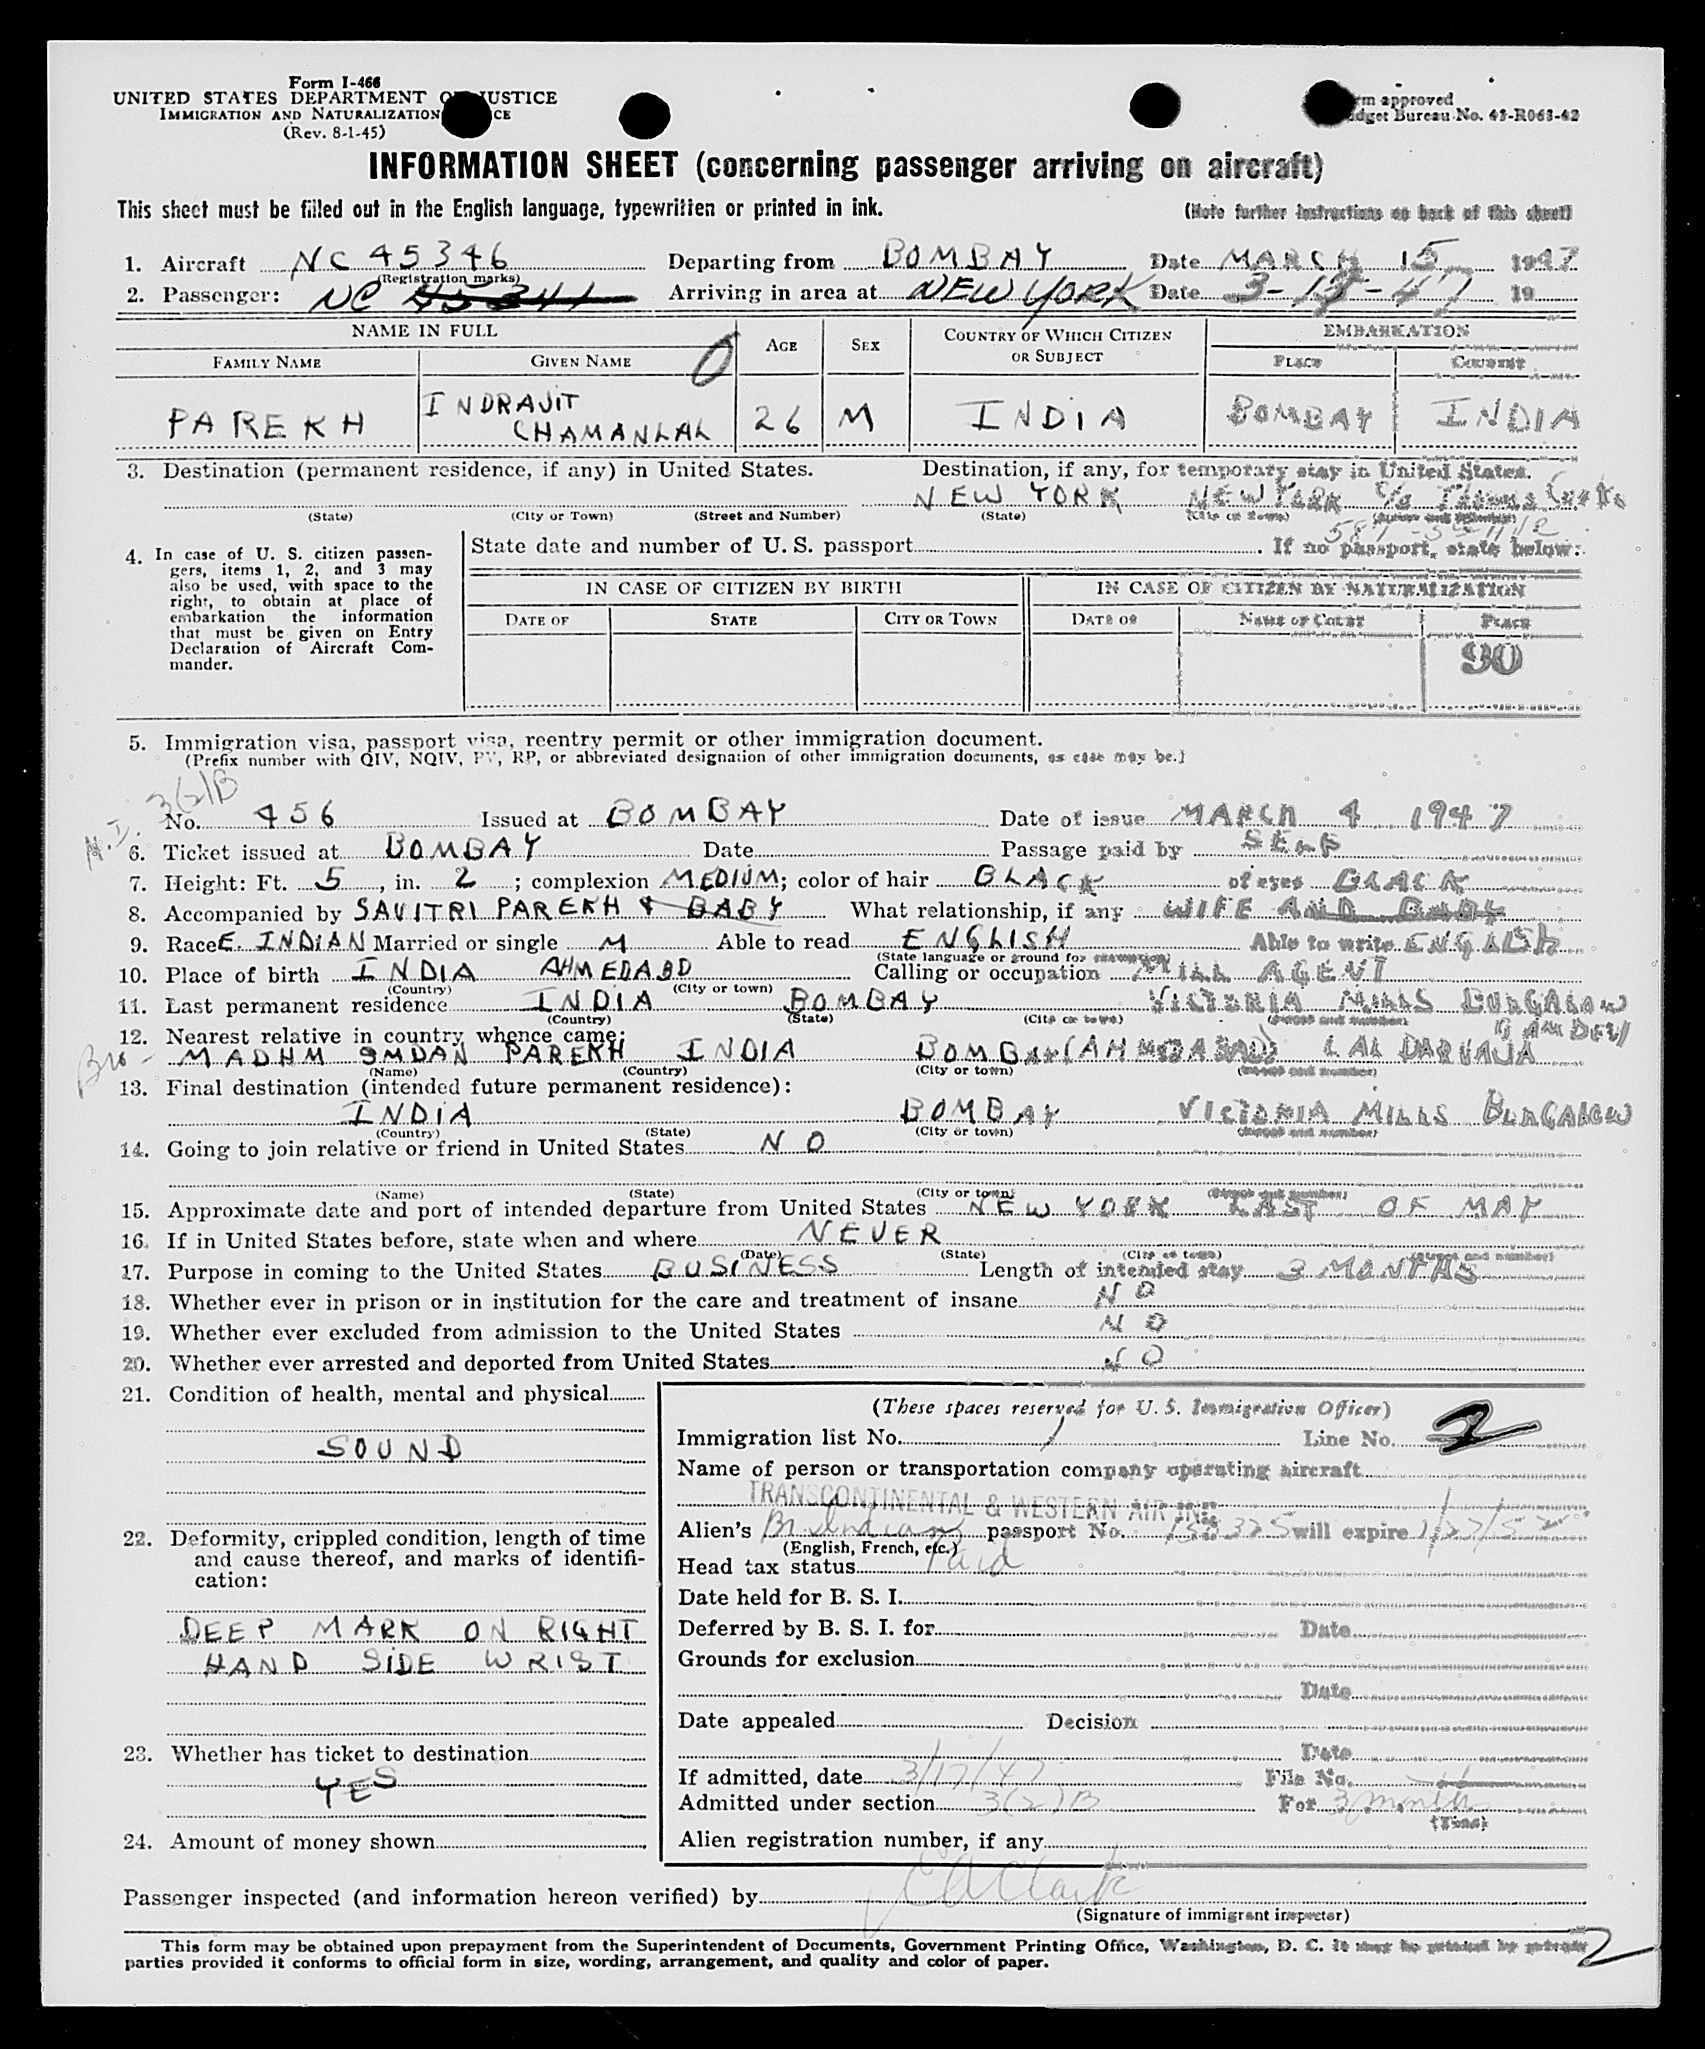 Form I-466
UNITED STATES DEPARTMENT OF JUSTICE
IMMIGRATION AND NATURALIZATION
(Rev. 8-1-45)
approved
Budget Bureau No. 43-R063-42
INFORMATION SHEET (concerning passenger arriving on aircraft)
This sheet must be filled out in the English language, typewritten or printed in ink. (Note further instructions on back of this sheet)
1. Aircraft NC 45346 Departing from BOMBAY Date MARCH 15 1947
(Registration marks)
2. Passenger: NC 45341 Arriving in area at NEW YORK Date 3-17-47 19
NAME IN FULL AGE SEX COUNTRY OF WHICH CITIZEN OR SUBJECT EMBARKATION
FAMILY NAME GIVEN NAME 0 PLACE COUNTRY
PAREKH INDRAJIT CHAMANLAL 26 M INDIA BOMBAY INDIA
3. Destination (permanent residence, if any) in United States. Destination, if any, for temporary stay in United States.
NEW YORK NEW YORK c/o Thomas Cooks
(State) (City or Town) (Street and Number) (State) (City or Town) (Street and Number)
587-5
4. In case of U. S. citizen passengers, items 1, 2, and 3 may also be used, with space to the right, to obtain at place of embarkation the information that must be given on Entry Declaration of Aircraft Commander.
State date and number of U. S. passport. If no passport, state below:
IN CASE OF CITIZEN BY BIRTH IN CASE OF CITIZEN BY NATURALIZATION
DATE OF STATE CITY OR TOWN DATE OF NAME OF COURT PLACE
90
5. Immigration visa, passport visa, reentry permit or other immigration document.
(Prefix number with QIV, NQIV, PV, RP, or abbreviated designation of other immigration documents, as case may be.)
3(2)B
No. 456 Issued at BOMBAY Date of issue MARCH 4 1947
N.I.
6. Ticket issued at BOMBAY Date Passage paid by SELF
7. Height: Ft. 5, in. 2; complexion MEDIUM; color of hair BLACK of eyes BLACK
8. Accompanied by SAVITRI PAREKH & BABY What relationship, if any WIFE AND BABY
9. Race E. INDIAN Married or single M Able to read ENGLISH Able to write ENGLISH
(State language or ground for exemption)
10. Place of birth INDIA AHMEDABD Calling or occupation MILL AGENT
(Country) (City or town)
11. Last permanent residence INDIA BOMBAY VICTORIA MILLS BUNGALOW
(Country) (State) (City or town) (Street and number)
GAMDEVI
12. Nearest relative in country whence came:
Bro - MADHUSUDAN PAREKH INDIA BOMBAY (AHMEDABAD) LAL DARVAJA
(Name) (Country) (City or town) (Street and number)
13. Final destination (intended future permanent residence):
INDIA BOMBAY VICTORIA MILLS BUNGALOW
(Country) (State) (City or town) (Street and number)
14. Going to join relative or friend in United States NO
(Name) (State) (City or town) (Street and number)
15. Approximate date and port of intended departure from United States NEW YORK LAST OF MAY
16. If in United States before, state when and where NEVER
(Date) (State) (City or town) (Street and number)
17. Purpose in coming to the United States BUSINESS Length of intended stay 3 MONTHS
18. Whether ever in prison or in institution for the care and treatment of insane NO
19. Whether ever excluded from admission to the United States NO
20. Whether ever arrested and deported from United States NO
21. Condition of health, mental and physical
SOUND
22. Deformity, crippled condition, length of time and cause thereof, and marks of identification:
DEEP MARK ON RIGHT
HAND SIDE WRIST
23. Whether has ticket to destination
YES
24. Amount of money shown
(These spaces reserved for U. S. Immigration Officer)
Immigration list No. 1 Line No. 2
Name of person or transportation company operating aircraft
TRANSCONTINENTAL & WESTERN AIR INC
Alien's Br Indian passport No. will expire 1/27/52
(English, French, etc.)
Head tax status Paid
Date held for B. S. I.
Deferred by B. S. I. for Date
Grounds for exclusion
Date
Date appealed Decision
Date
If admitted, date 3/17/47 File No.
Admitted under section 3(2)B For 3 months
(Time)
Alien registration number, if any
Passenger inspected (and information hereon verified) by Clark
(Signature of immigrant inspector)
This form may be obtained upon prepayment from the Superintendent of Documents, Government Printing Office, Washington, D. C. It may be printed by private
parties provided it conforms to official form in size, wording, arrangement, and quality and color of paper.
2